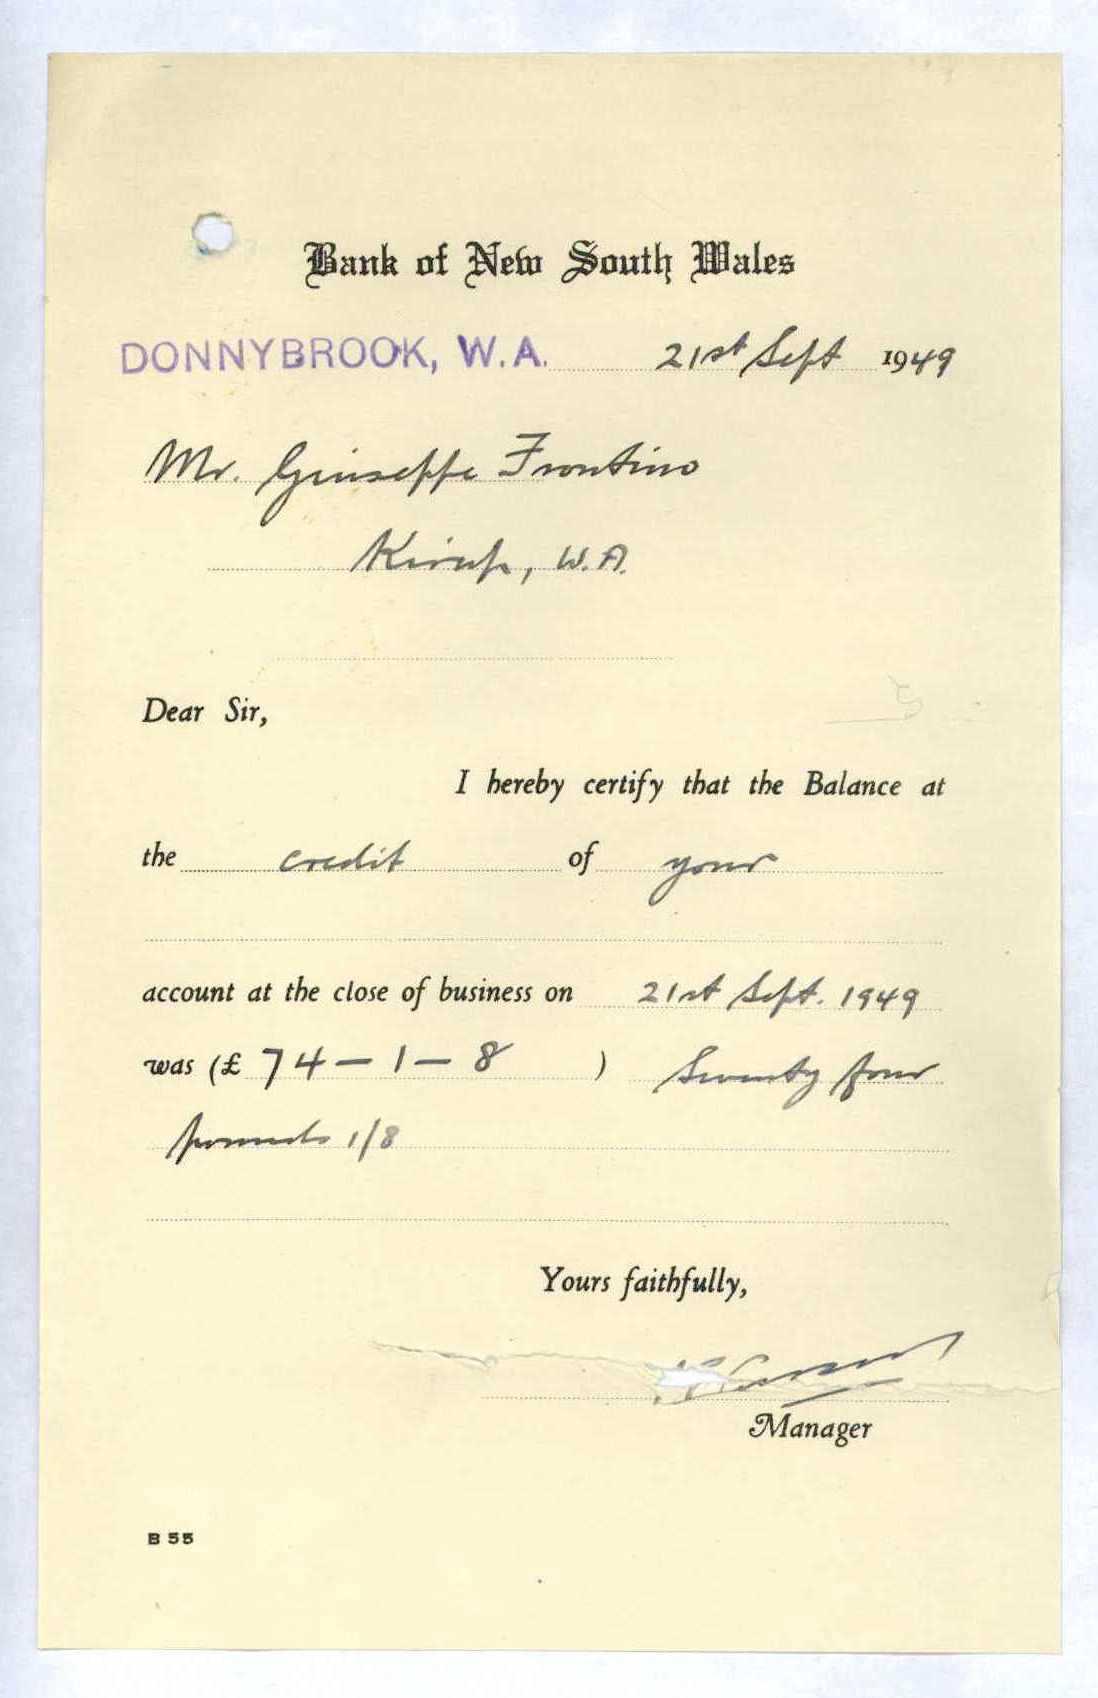 Bank of New South Wales
DONNYBROOK, W.A. 21st Sept 1949
Mr. Giuseppe Frontino
Kirup, W.A.
Dear Sir,
I hereby certify that the Balance at
the credit of your
account at the close of business on 21st Sept. 1949
was (£ 74 - 1 - 8 ) Seventy four
pounds 1/8
Yours faithfully,
Manager
B 55